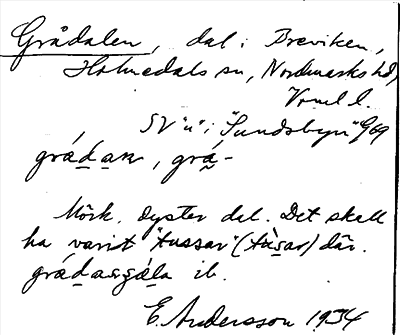 Grådalen, dal i Breviken,
Holmedals sn, Nordmarks hd,
Vrml l.
SV "u" i "Sundsbyn" 9/69
grád̲a̲n, grá̲-
Mörk, dyster dal. Det skall
ha varit "tussar" (tùs̲ar) där.
ib.
E. Andersson 1934